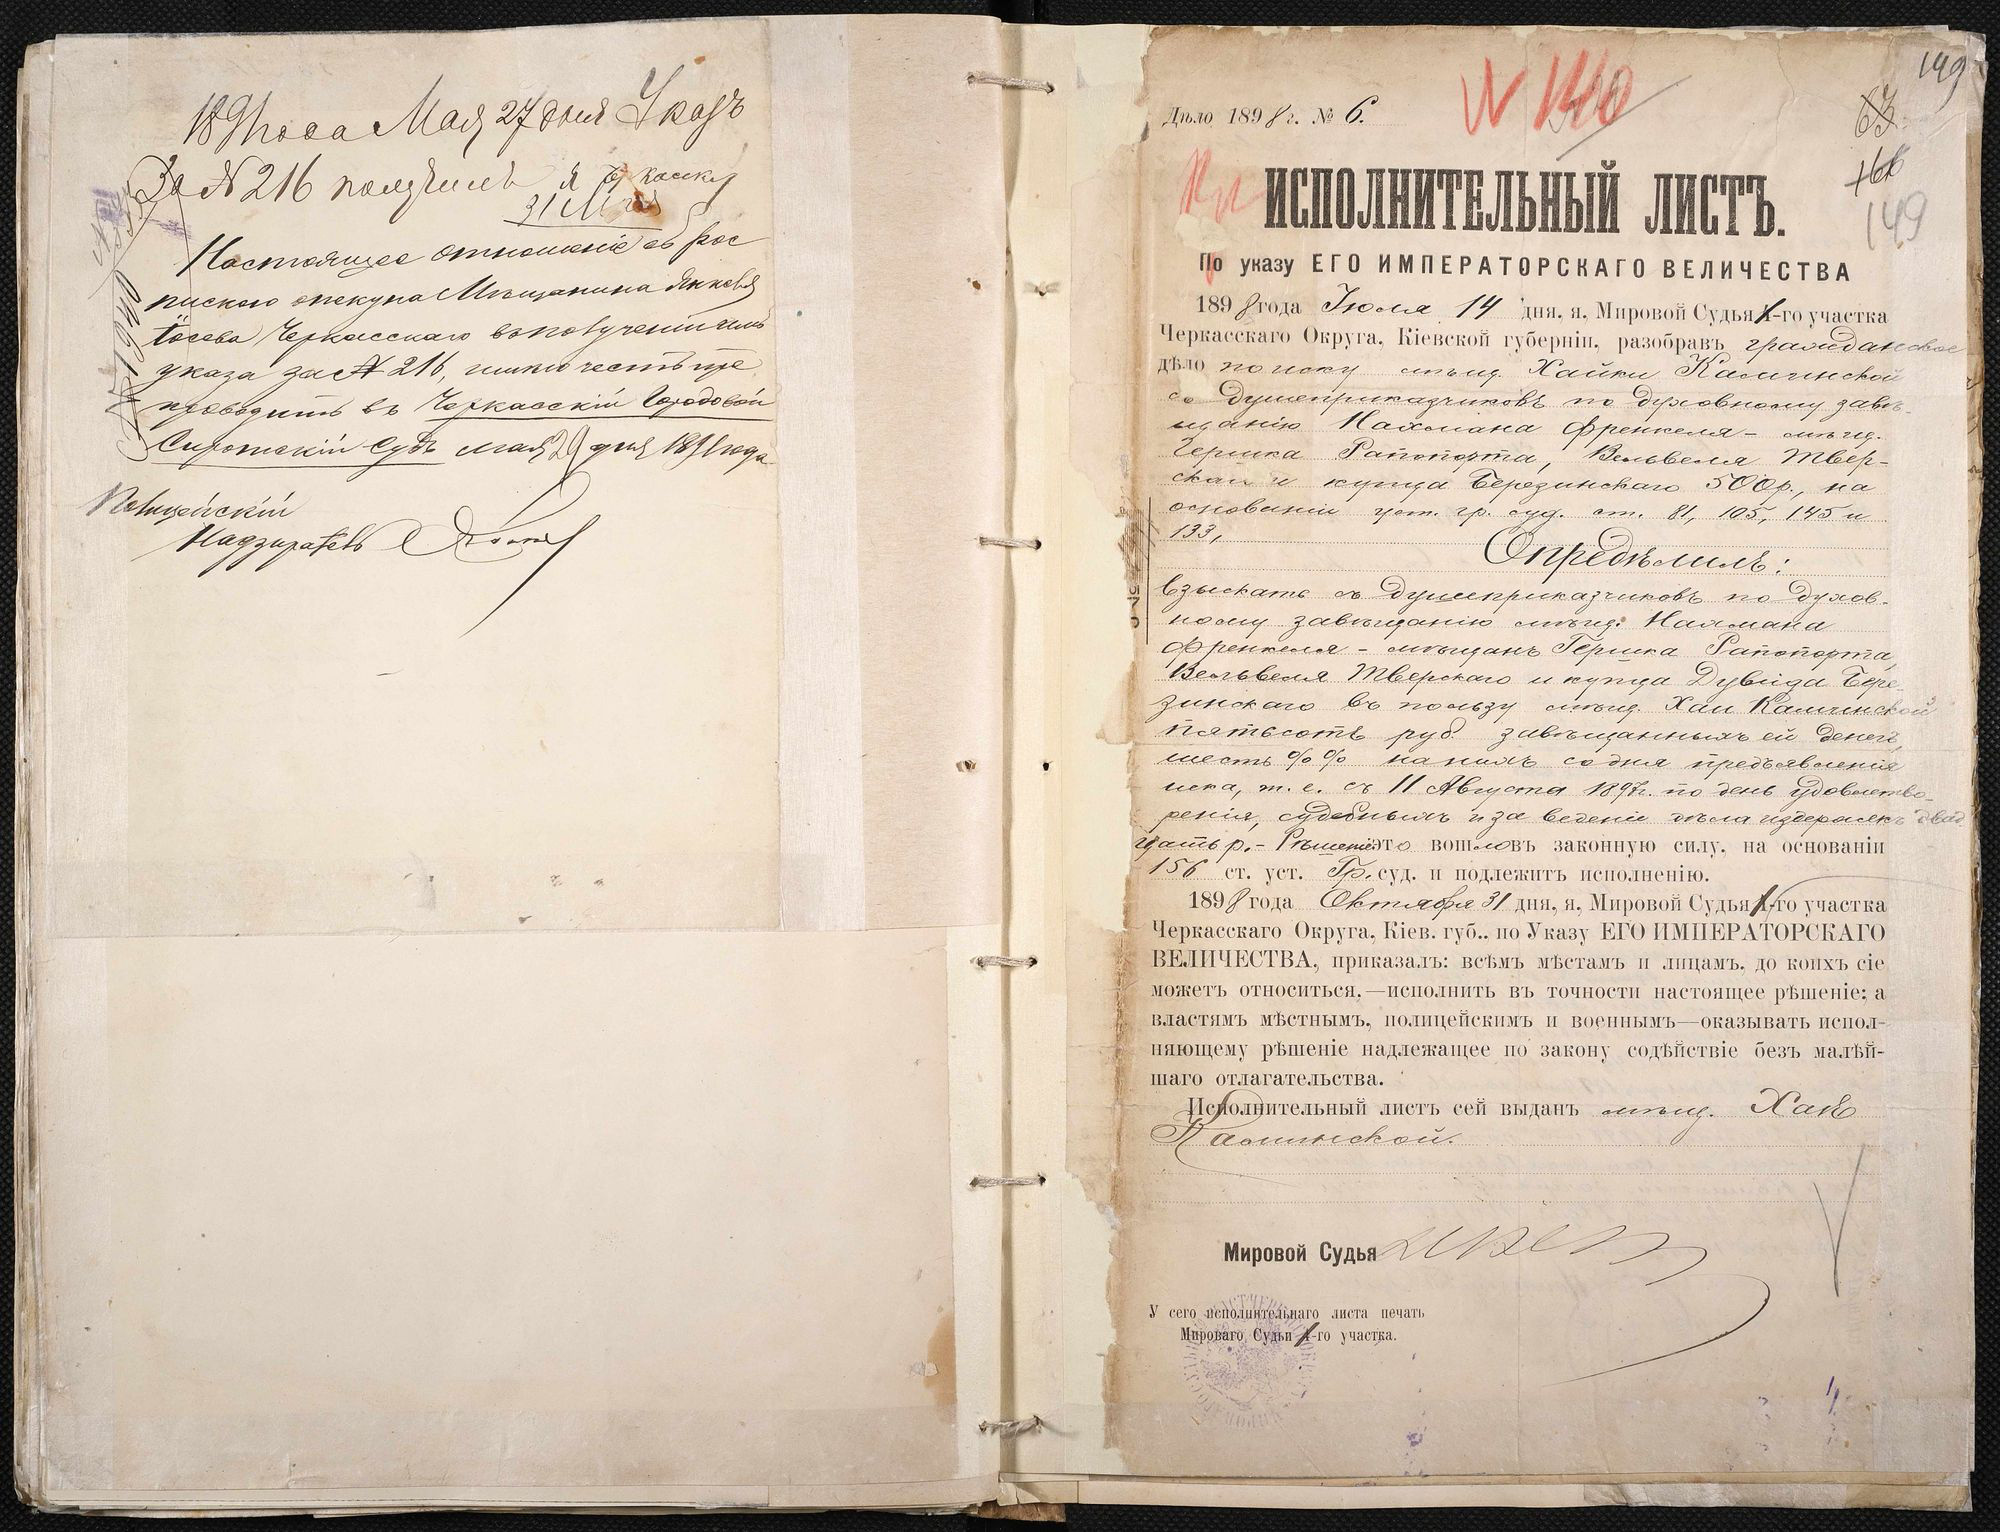 1891 года Мая 27 дня Указъ
За № 216 получилъ я
31 Мая
Настоящее отношеніе съ рос
пискою опекуна Мѣщанина Якковя
Іосева Черкасскаго въ получении имъ
указа за № 216, имѣю честь пре
проводить въ Черкасскій Городовой
Сиротскій Судъ мая 29 дня 1891 года
Полицейскій
Надзиратель
149
№ 140
Дѣло 1898 г. № 6.
63
149
ИСПОЛНИТЕЛЬНЫЙ ЛИСТЪ.
По указу ЕГО ИМПЕРАТОРСКАГО ВЕЛИЧЕСТВА
1898 года Іюля 14 дня, я, Мировой Судья 1-го участка
Черкасскаго Округа, Кіевской губерніи, разобравъ гражданское
дѣло по иску мѣщ. Хайки Калинской
съ душеприказчиковъ по духовному завѣ-
щанію Нахмана Френкеля – мѣщ.
Гершка Рапопорта, Вельвеля Твер-
скаго и купца Березинскаго 500 р., на
основаніи уст. гр. суд. ст. 81, 105, 145 и
133,
Опредѣлилъ:
взыскать съ душеприказчиковъ по духов-
ному завѣщанію мѣщ. Нахмана
Френкеля – мѣщанъ Гершка Рапопорта,
Вельвеля Тверскаго и купца Дувида Бере-
зинскаго въ пользу мѣщ. Хаи Калинской
пятьсотъ руб. завѣщанныхъ ей денегъ,
шесть %% на нихъ со дня предъявленія
иска, т. е. съ 11 Августа 1897 г. по день удовлетво-
ренія, судебныхъ и за веденіе дѣла издержекъ двад
цать р. – Рѣшеніе это вошло въ законную силу, на основаніи
156 ст. уст. Гр. суд. и подлежитъ исполненію.
1898 года Октября 31 дня, я, Мировой Судья 1-го участка
Черкасскаго Округа, Кіев. губ., по Указу ЕГО ИМПЕРАТОРСКАГО
ВЕЛИЧЕСТВА, приказалъ: всѣмъ мѣстамъ и лицамъ, до коихъ сіе
можетъ относиться,—исполнить въ точности настоящее рѣшеніе; а
властямъ мѣстнымъ, полицейскимъ и военнымъ—оказывать испол-
няющему рѣшеніе надлежащее по закону содѣйствіе безъ малѣй-
шаго отлагательства.
Исполнительный листъ сей выданъ мѣщ. Хаѣ
Калинской.
Мировой Судья
У сего исполнительнаго листа печать
Мироваго Судьи 1-го участка.